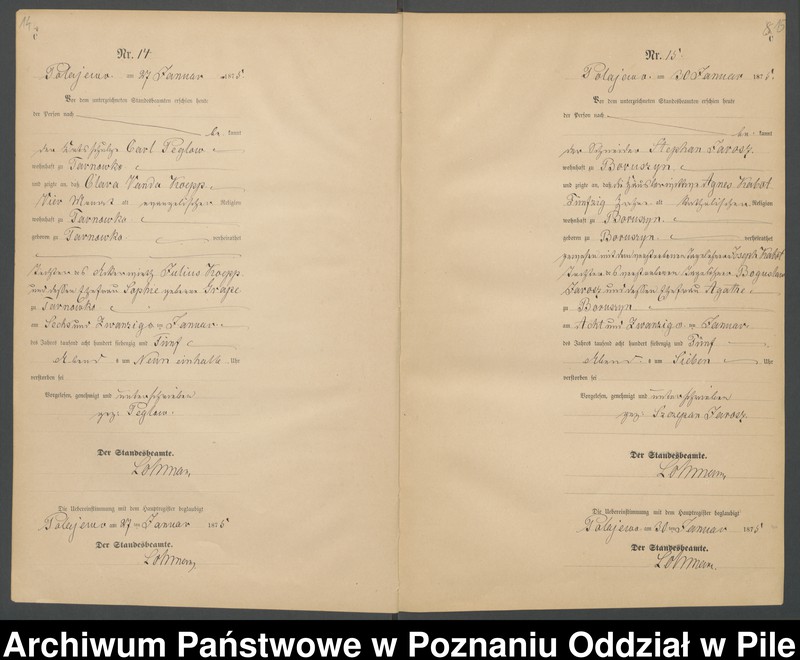 14
Nr. 14
Polajewo am 27 Januar 1875
Vor dem unterzeichneten Standesbeamten erschien heute
der Person nach
be kannt
der Amtsschulze Carl Peglow
wohnhaft zu Tarnowko
und zeigte an, daß Clara Wanda Koepp
Vier Monat alt evangelischer Religion
wohnhaft zu Tarnowko
geboren zu Tarnowko verheirathet
Tochter des Ackerwirth Julius Koepp
und dessen Ehefrau Sophie geborene Grape
zu Tarnowko
am Sechs und Zwanzig ten Januar
des Jahres tausend acht hundert siebenzig und Fünf
Abend s um Neun einhalb Uhr
verstorben sei
Vorgelesen, genehmigt und unterschrieben
gez. Peglow.
Der Standesbeamte.
Lohman
Die Uebereinstimmung mit dem Hauptregister beglaubigt
Polajewo am 27 ten Januar 1875
Der Standesbeamte.
Lohman
15
Nr. 15
Polajewo am 30 Januar 1875.
Vor dem unterzeichneten Standesbeamten erschien heute
der Person nach
be kannt
der Schneider Stephan Jarosz.
wohnhaft zu Boruszyn
und zeigte an, daß die Häuslerwittwe Agnes Kabot
Fünfzig Jahr alt katholischer Religion
wohnhaft zu Boruszyn.
geboren zu Boruszyn. verheirathet
gewesen mit dem verstorbenen Tagelöhner Joseph Kabot
Tochter des verstorbenen Tagelöhner Boguslaw
Jarosz und dessen Ehefrau Agathe
zu Boruszyn
am Acht und Zwanzig ten Januar
des Jahres tausend acht hundert siebenzig und Fünf
Abend s um Sieben Uhr
verstorben sei
Vorgelesen, genehmigt und unterschrieben
gez. Szczepan Jarosz.
Der Standesbeamte.
Lohman
Die Uebereinstimmung mit dem Hauptregister beglaubigt
Polajewo am 30 ten Januar 1875
Der Standesbeamte.
Lohman.
Archiwum Państwowe w Poznaniu Oddział w Pile